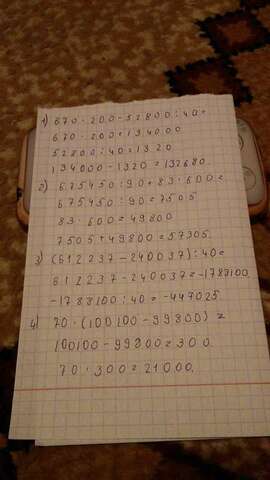 1) 670 · 200 - 52800 : 40 =
670 · 200 = 134000
52800 : 40 = 1320
134000 - 1320 = 132680.
2) 675450 : 90 + 83 · 600 =
675450 : 90 = 7505
83 · 600 = 49800
7505 + 49800 = 57305.
3) (612237 - 240037) : 40 =
612237 - 240037 = -1788100
-1788100 : 40 = -447025
4) 70 · (100100 - 99800) =
100100 - 99800 = 300.
70 · 300 = 21000.